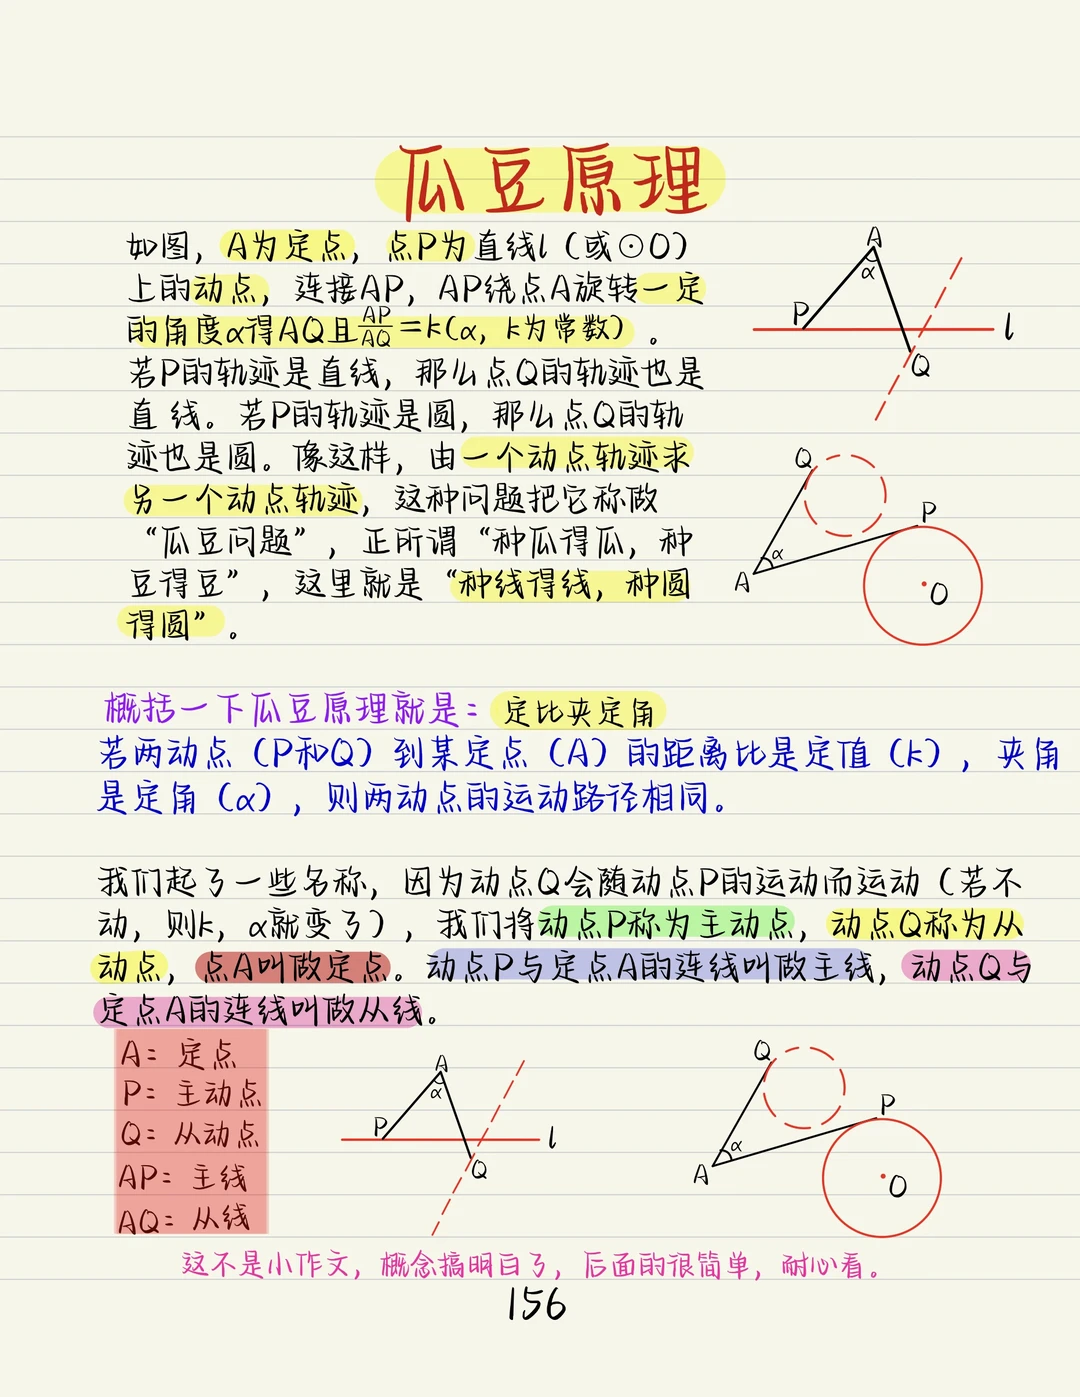 瓜豆原理
如图，A为定点，点P为直线l（或⊙O）
上的动点，连接AP，AP绕点A旋转一定
的角度α得AQ且AP/AQ=k(α，k为常数）。
若P的轨迹是直线，那么点Q的轨迹也是
直线。若P的轨迹是圆，那么点Q的轨
迹也是圆。像这样，由一个动点轨迹求
另一个动点轨迹，这种问题把它称做
“瓜豆问题”，正所谓“种瓜得瓜，种
豆得豆”，这里就是“种线得线，种圆
得圆”。
A
α
P
l
Q
Q
P
A
α
O
概括一下瓜豆原理就是：定比夹定角
若两动点（P和Q）到某定点（A）的距离比是定值（k），夹角
是定角（α），则两动点的运动路径相同。
我们起了一些名称，因为动点Q会随动点P的运动而运动（若不
动，则k，α就变了），我们将动点P称为主动点，动点Q称为从
动点，点A叫做定点。动点P与定点A的连线叫做主线，动点Q与
定点A的连线叫做从线。
A：定点
P：主动点
Q：从动点
AP：主线
AQ：从线
A
α
P
l
Q
Q
P
A
α
O
这不是小作文，概念搞明白了，后面的很简单，耐心看。
156